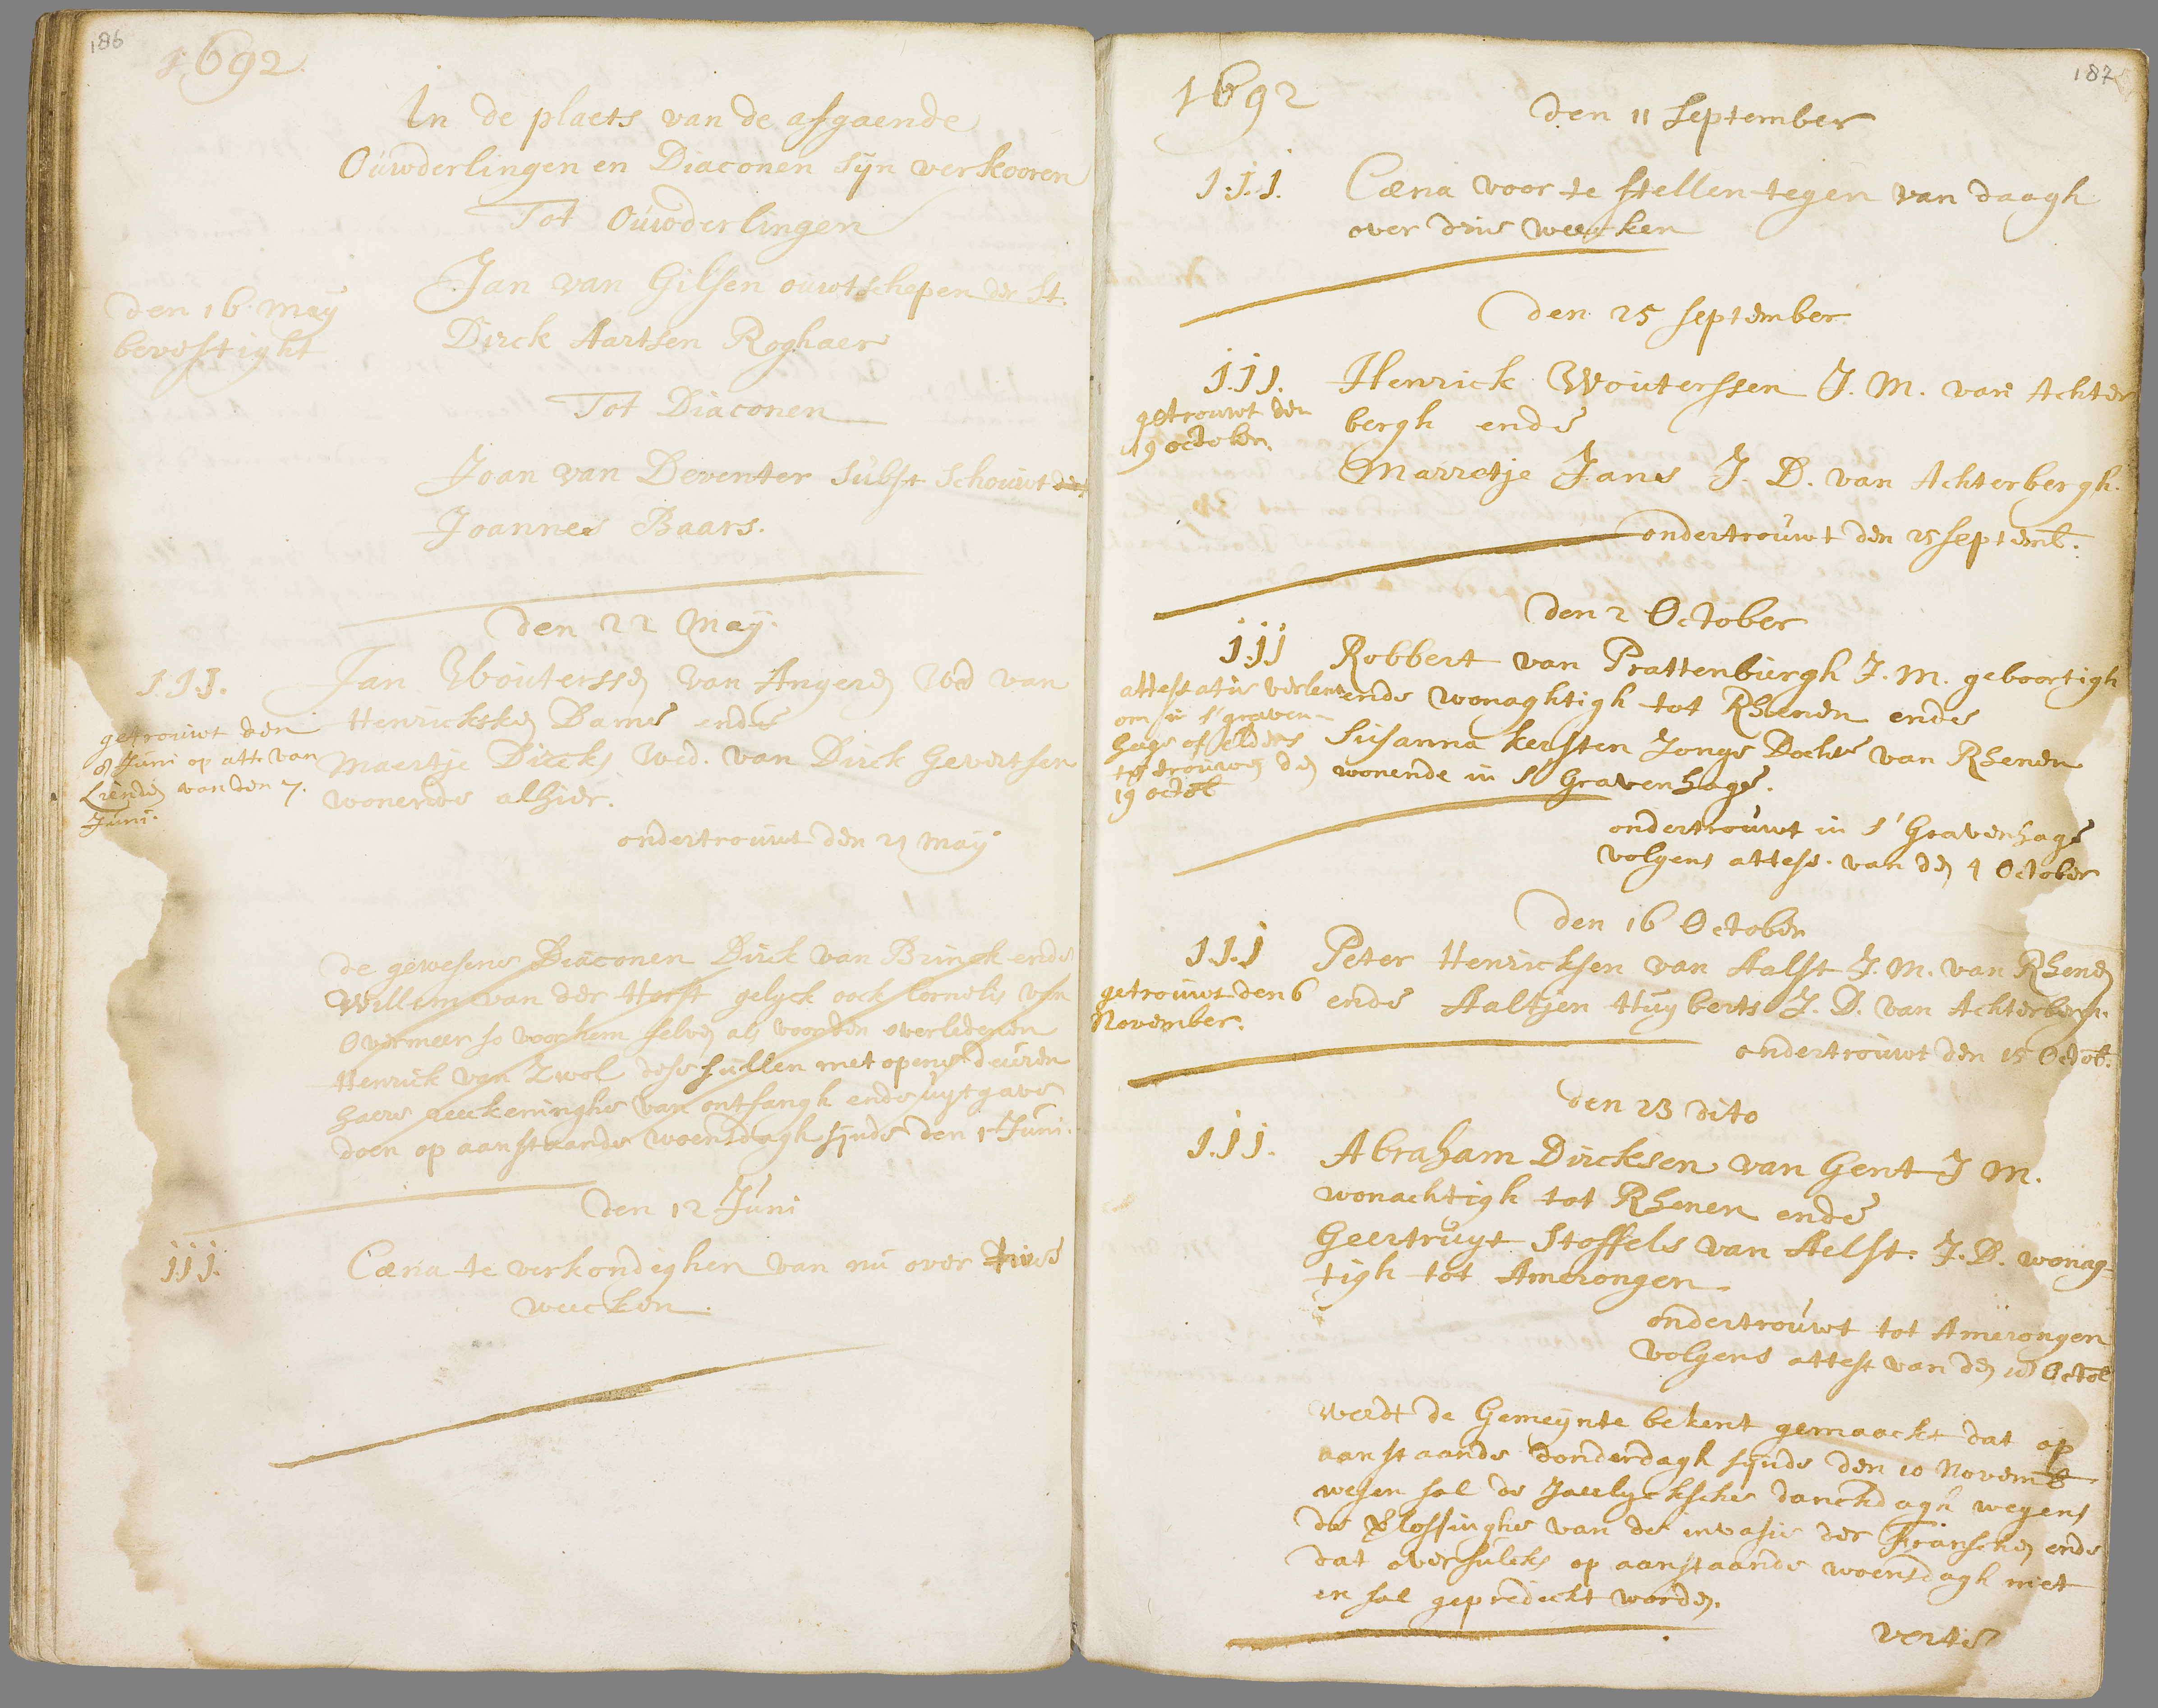 186
1692
In de plaets van de afgaende
Ouwderlingen en Diaconen sijn verkooren
Tot Ouwderlingen
Jan van Gilsen ouwtschepen der St.
den 16 meij
bevestight
Dirck Aartsen Roghaer
Tot Diaconen
Joan van Deventer subst schouwt
Joannes Baars.
den 22 Maij.
J.J.J.
getrouwt den
8 Juni op att van
Lienden van den 7.
Juni.
Jan Woutersen van Angeren Wed van
Henricksken Dame ende
Maertje Dircks Wed. van Dirck Gevertsen
wonende alhier.
ondertrouwt den 21 maij
de gewesene Diaconen Dirck van Brinck ende
Willem van der Horst gelyck oock Cornelis van
Overmeer so voor hem selven als voor den overledenen
Henrick van Zwol dese sullen met opene deuren
haere reeckeninghe van ontfangh ende uytgave
doen op aanstaande woensdagh sijnde den 1 Juni.
den 12 Juni
jjj.
Cœna te verkondighen van nu over
weecken.
187
1692
den 11 September
J.J.J.
Cœna voor te stellen tegen van daagh
over drie weecken
den 25 september
J.J.J.
getrouwt den
19 october.
Henrick Wouterssen J. M. van Achter
bergh ende
Marretje Jans J. D. van Achterbergh.
ondertrouwt den 25 septemb.
den 2 October
jjj
attestatie verlent
om in s'graven-
hage of elders
te trouwen den
19 octob
Robbert van Prattenburgh J. M. geboortigh
ende wonaghtigh tot Rhenen ende
Susanna kersten Jonge Dochter van Rhenen
wonende in s'Gravenhage.
ondertrouwt in s'Gravenhage
volgens attest. van den 4 October
den 16 October
J.J.J
getrouwt den 6
November.
Peter Henricksen van Aalst J. M. van Rhenen
ende Aaltjen Huyberts J. D. van Achterbergh.
ondertrouwt den 15 Octob.
den 23 dito
J.J.J.
Abraham Dircksen van Gent J M.
wonachtigh tot Rhenen ende
Geertruyt Stoffels van Aelst. J. D. wonag-
tigh tot Amerongen
ondertrouwt tot Amerongen
volgens attest van den Octob
Werdt de Gemeijnte bekent gemaackt dat op
aanstaande donderdagh sijnde den 10 Novemb
wesen sal de Jaerlycksche danckdagh wegens
de Verlossinghe van de invasie der Franschen ende
dat oversulcks op aanstaande woensdagh niet
en sal gepredickt worden.
verte